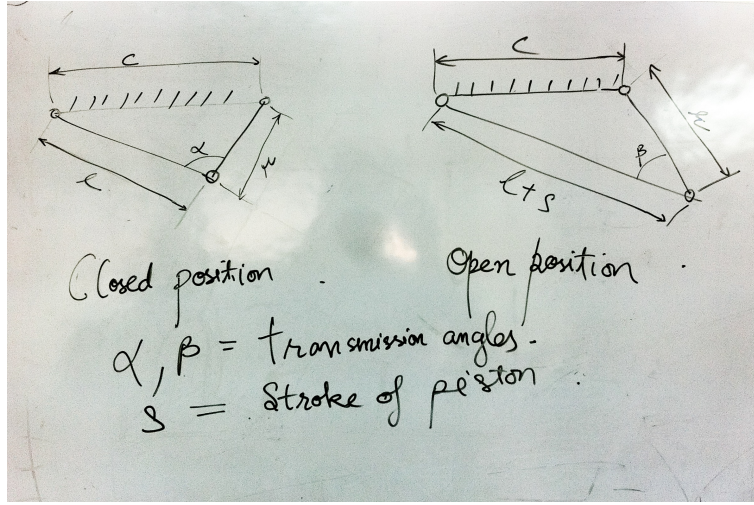 C
C
α
r
β
r
l
l+s
Closed position .
Open position .
α, β = transmission angles.
s = Stroke of piston .